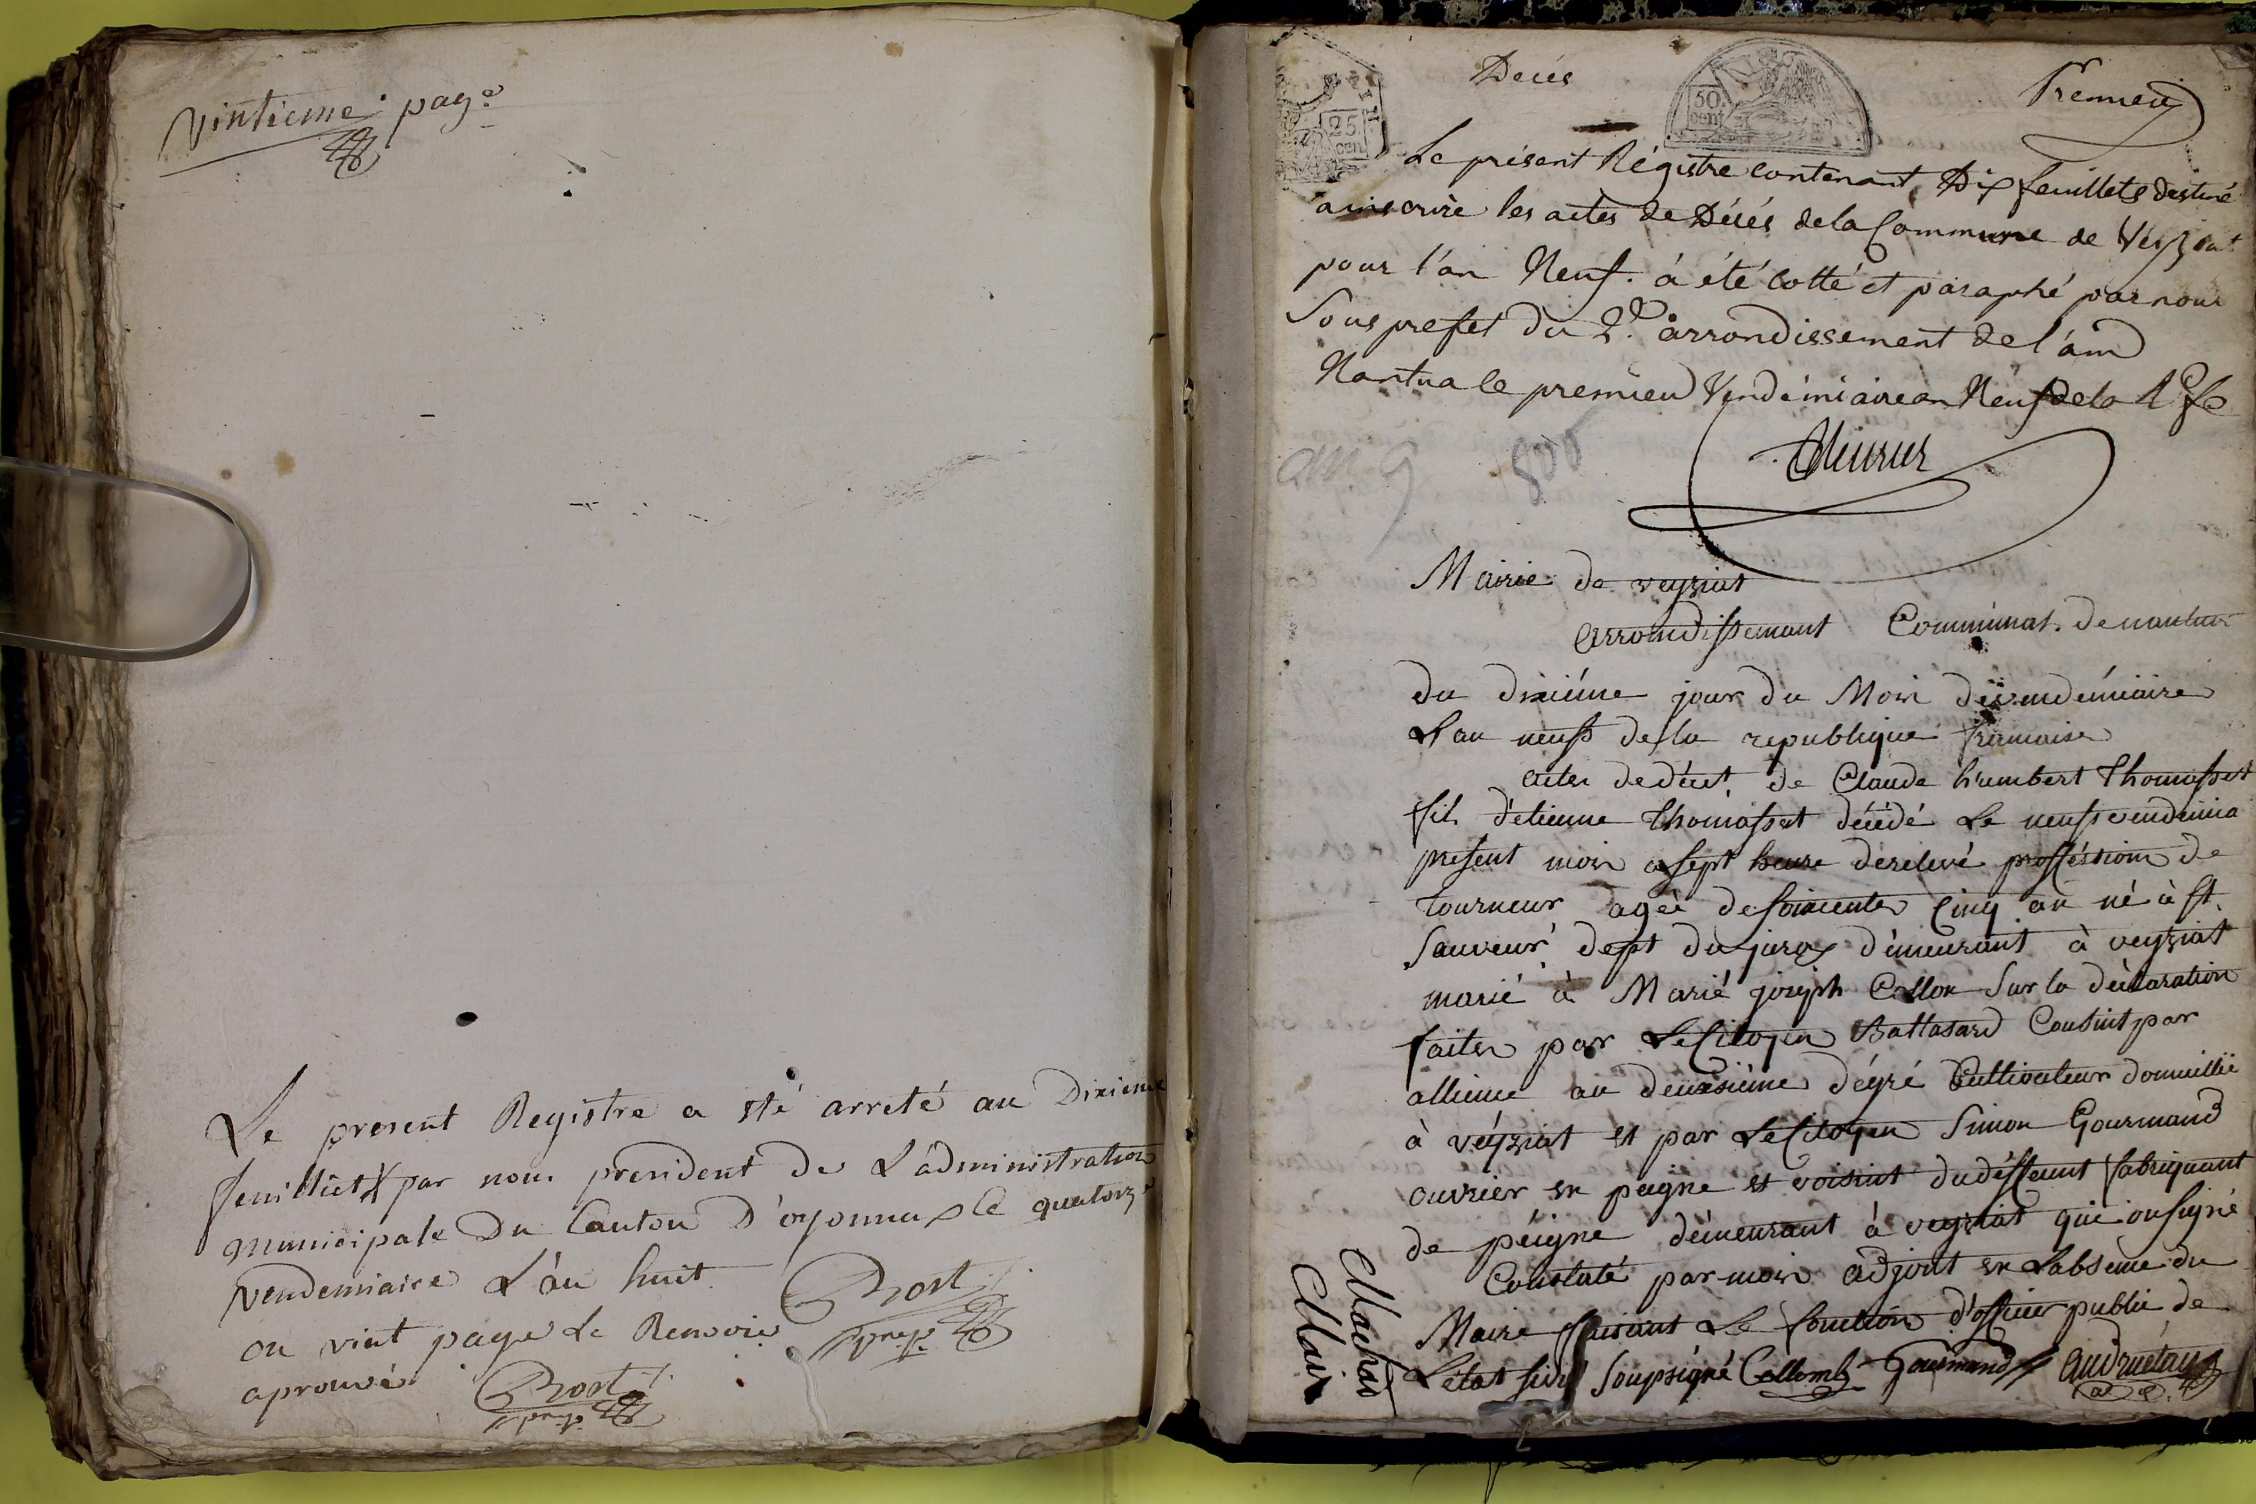 vintieme page
Le present Registre a eté arreté au Dixieme
feuilliet X par nous president de L'administration
municipale Du Canton D'oyonnax le quatorze
vendemiaire L'an huit
ou vint page Le Renvoie
aprouvé
Brost
presd.
Brost
presd.
Decés
Premier
50.
cent
25
cen
Le présent Régistre contenant Dix feuillets destiné
a inscrire les actes de Décés de la Commune de Veyziat
pour l'an Neuf. á été cotté et paraphé par nous
Sous prefet du 2e. arrondissement de l'ain
Nantua le premier Vendémiaire an Neuf de la R fse
an 9 800
Mairie de veyziat
arrondissemant Communat. de nantua
du dixiéme jour du Mois de vendémiaire
L'an neuf de la republique francaise
actes de décet de Claude humbert Thomasset
fils d'etienne Thomasset décédé Le neuf vendemia
present mois a sept heure derelevé proffession de
Tourneur agée de soixcente cinq an né à st.
Sauveur dept du jura demeurant à veyziat
marié à Marié joseph Collon Sur la déclaration
faites par Le Citoyen Baltasard Cousint par
allience au deuxsiéme dégré Cultivateur domicillié
à véyziat et par Le Citoyen Simon Gourmand
ouvrier en peigne et voisint dudéffeunt fabriquant
de péigne démeurant à veyziat qui on signé
Constaté par mois adjoint en L'absence du
Maire faisant Le fonction d'officier public de
L'état sivil Soupsigné Collomb Gourmand audruétan
Maire